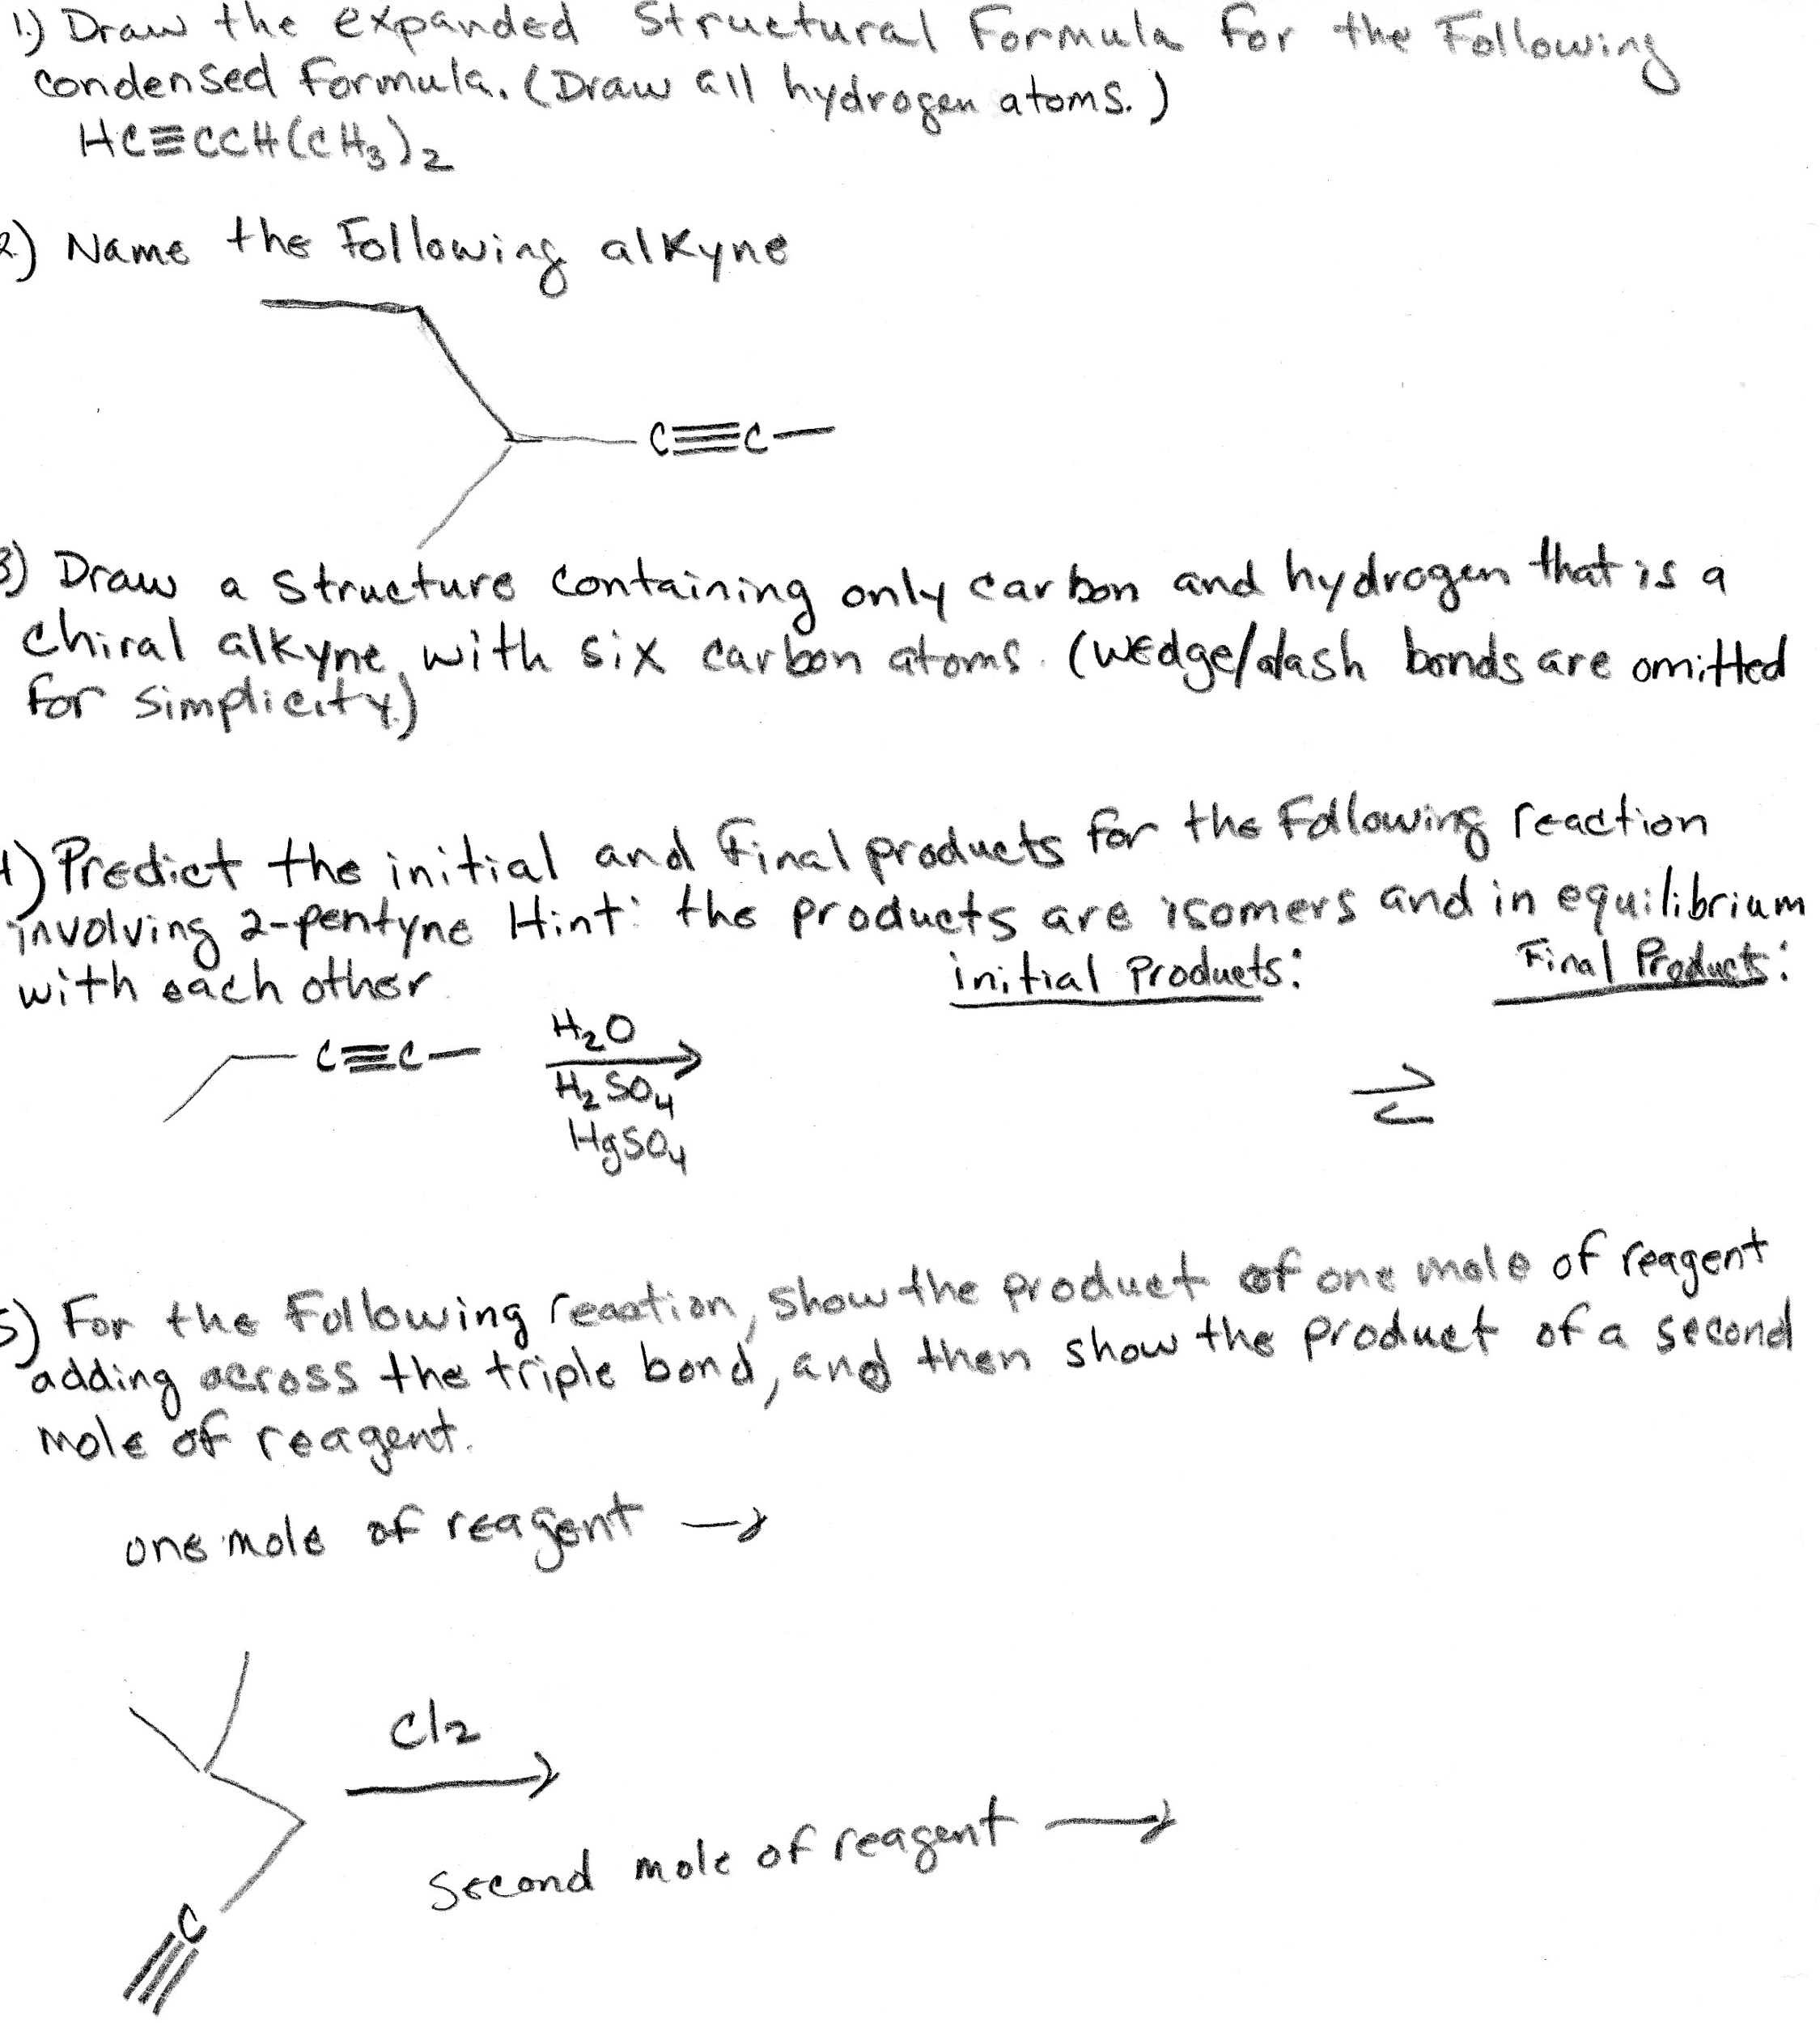 1.) Draw the expanded Structural Formula for the Following
condensed formula. (Draw all hydrogen atoms.)
HC≡CCH(CH₃)₂
2.) Name the Following alkyne
C≡C
3) Draw a Structure containing only carbon and hydrogen that is a
chiral alkyne, with six carbon atoms. (wedge/dash bonds are omitted
for simplicity.)
4) Predict the initial and final products for the Following reaction
involving 2-pentyne Hint: the products are isomers and in equilibrium
with each other.
initial Products: Final Products:
C≡C H₂O
H₂SO₄
HgSO₄
⇌
5) For the Following reaction, show the product of one mole of reagent
adding across the triple bond, and then show the product of a second
mole of reagent.
one mole of reagent →
Cl₂
second mole of reagent →
C